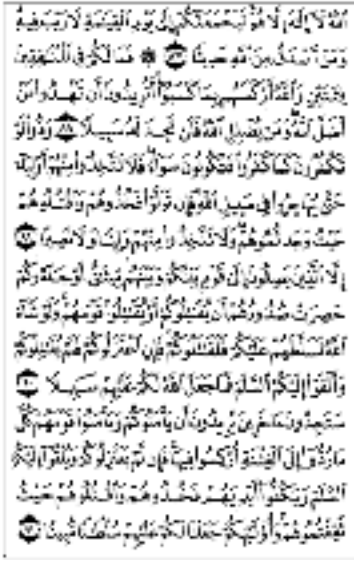 ٱللَّهُ لَآ إِلَٰهَ إِلَّا هُوَ لَيَجْمَعَنَّكُمْ إِلَىٰ يَوْمِ ٱلْقِيَٰمَةِ لَا رَيْبَ فِيهِ
وَمَنْ أَصْدَقُ مِنَ ٱللَّهِ حَدِيثًا ۝٨٧ ۞ فَمَا لَكُمْ فِى ٱلْمُنَٰفِقِينَ
فِئَتَيْنِ وَٱللَّهُ أَرْكَسَهُم بِمَا كَسَبُوٓا۟ أَتُرِيدُونَ أَن تَهْدُوا۟ مَنْ
أَضَلَّ ٱللَّهُ وَمَن يُضْلِلِ ٱللَّهُ فَلَن تَجِدَ لَهُۥ سَبِيلًا ۝٨٨ وَدُّوا۟ لَوْ
تَكْفُرُونَ كَمَا كَفَرُوا۟ فَتَكُونُونَ سَوَآءً فَلَا تَتَّخِذُوا۟ مِنْهُمْ أَوْلِيَآءَ
حَتَّىٰ يُهَاجِرُوا۟ فِى سَبِيلِ ٱللَّهِ فَإِن تَوَلَّوْا۟ فَخُذُوهُمْ وَٱقْتُلُوهُمْ
حَيْثُ وَجَدتُّمُوهُمْ وَلَا تَتَّخِذُوا۟ مِنْهُمْ وَلِيًّا وَلَا نَصِيرًا ۝٨٩
إِلَّا ٱلَّذِينَ يَصِلُونَ إِلَىٰ قَوْمٍۭ بَيْنَكُمْ وَبَيْنَهُم مِّيثَٰقٌ أَوْ جَآءُوكُمْ
حَصِرَتْ صُدُورُهُمْ أَن يُقَٰتِلُوكُمْ أَوْ يُقَٰتِلُوا۟ قَوْمَهُمْ وَلَوْ شَآءَ
ٱللَّهُ لَسَلَّطَهُمْ عَلَيْكُمْ فَلَقَٰتَلُوكُمْ فَإِنِ ٱعْتَزَلُوكُمْ فَلَمْ يُقَٰتِلُوكُمْ
وَأَلْقَوْا۟ إِلَيْكُمُ ٱلسَّلَمَ فَمَا جَعَلَ ٱللَّهُ لَكُمْ عَلَيْهِمْ سَبِيلًا ۝٩٠
سَتَجِدُونَ ءَاخَرِينَ يُرِيدُونَ أَن يَأْمَنُوكُمْ وَيَأْمَنُوا۟ قَوْمَهُمْ كُلَّ
مَا رُدُّوٓا۟ إِلَى ٱلْفِتْنَةِ أُرْكِسُوا۟ فِيهَا فَإِن لَّمْ يَعْتَزِلُوكُمْ وَيُلْقُوٓا۟ إِلَيْكُمُ
ٱلسَّلَمَ وَيَكُفُّوٓا۟ أَيْدِيَهُمْ فَخُذُوهُمْ وَٱقْتُلُوهُمْ حَيْثُ
ثَقِفْتُمُوهُمْ وَأُو۟لَٰٓئِكُمْ جَعَلْنَا لَكُمْ عَلَيْهِمْ سُلْطَٰنًا مُّبِينًا ۝٩١